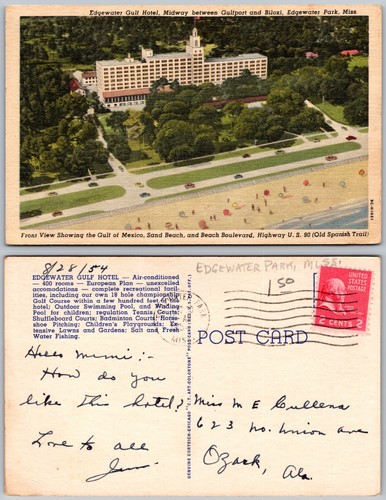 Edgewater Gulf Hotel, Midway between Gulfport and Biloxi, Edgewater Park, Miss.
Front View Showing the Gulf of Mexico, Sand Beach, and Beach Boulevard, Highway U. S. 90 (Old Spanish Trail)
8/28/54
EDGEWATER GULF HOTEL — Air-conditioned
— 400 rooms — European Plan — unexcelled
accomodations — complete recreational facil-
ities, including our own 18 hole championship
Golf Course within a few hundred feet of the
hotel; Outdoor Swimming Pool, and Wading
Pool for children; regulation Tennis Courts;
Shuffleboard Courts; Badminton Courts; Horse-
shoe Pitching; Children's Playgrounds; Ex-
tensive Lawns and Gardens; Salt and Fresh
Water Fishing.
EDGEWATER PARK, MISS.
150
UNITED STATES
POSTAGE
2 CENTS 2
POST CARD
GENUINE CURTEICH-CHICAGO "C.T. ART-COLORTONE" POST CARD
Hello Mimi:-
How do you
like this hotel?
Love to all
Miss M E Cullens
623 No. Union ave
Ozark, Ala.